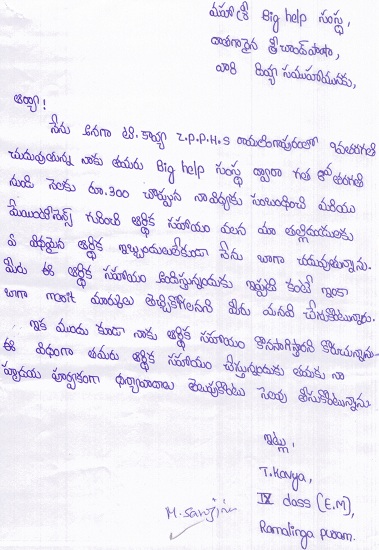 మహాశ్రీ Big help సంస్థ,
దాతగారైన శ్రీ చాంద్‌పాషా,
వారి దివ్య సముఖమునకు,
ఆర్యా!
నేను అనగా టి. కావ్య Z.P.P.H.S రామలింగాపురంలో 9వతరగతి
చదువుతున్న నాకు తమరు Big help సంస్థ ద్వారా గత తరగతి
నుండి నెలకు రూ.300 చొప్పున నా విద్యకు సంబంధించి మరియు
గురించి ఆర్థిక సహాయం వలన మా తల్లిదండ్రులకు
ఏ విధమైన ఆర్థిక ఇబ్బందులులేకుండా నేను బాగా చదువుతున్నాను.
మీరు ఈ ఆర్థిక సహాయం అందిస్తున్నందుకు ఇప్పటి కంటే ఇంకా
బాగా merit మార్కులు తెచ్చుకోగలనని మీకు మనవి చేసుకుంటున్నాను.
ఇక ముందు కూడా నాకు ఆర్థిక సహాయం కొనసాగిస్తారని కోరుచున్నాను.
ఈ విధంగా తమరు ఆర్థిక సహాయం చేస్తున్నందుకు తమకు నా
హృదయ పూర్వకంగా ధన్యవాదాలు తెలుపుకొంటు సెలవు తీసుకొంటున్నాను.
ఇట్లు,
T. Kavya,
IX class (E.M),
Ramalinga puram.